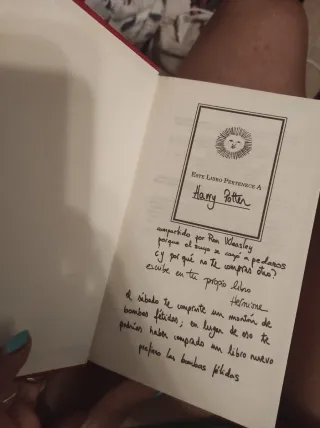 ESTE LIBRO PERTENECE A
Harry Potter
compartido por Ron Weasley
porque el suyo se cayó a pedazos
¿y por qué no te compras otro?
escribe en tu propio libro
Hermione
el sábado te compraste un montón de
bombas fétidas, en lugar de eso te
podrías haber comprado un libro nuevo
prefiero las bombas fétidas